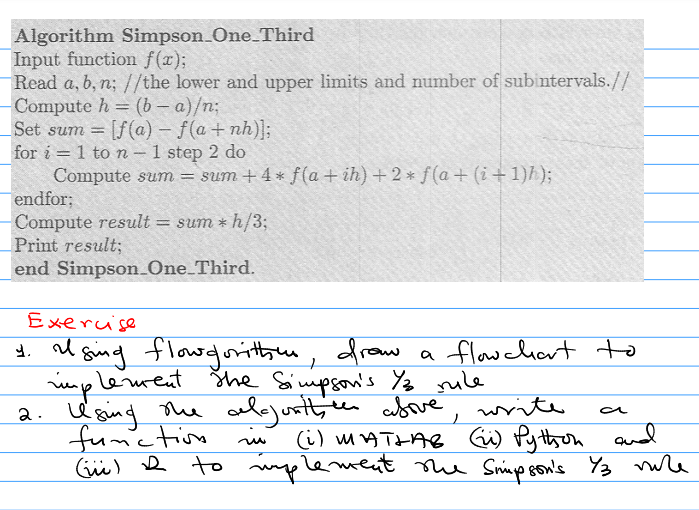 Algorithm Simpson_One_Third
Input function f(x);
Read a, b, n; //the lower and upper limits and number of subintervals.//
Compute h = (b − a)/n;
Set sum = [f(a) − f(a + nh)];
for i = 1 to n − 1 step 2 do
Compute sum = sum + 4 * f(a + ih) + 2 * f(a + (i + 1)h);
endfor;
Compute result = sum * h/3;
Print result;
end Simpson_One_Third.
Exercise
1. Using flowgorithm, draw a flowchart to
implement the Simpson's 1/3 rule
2. Using the algorithm above, write a
function in (i) MATLAB (ii) Python and
(iii) R to implement the Simpson's 1/3 rule